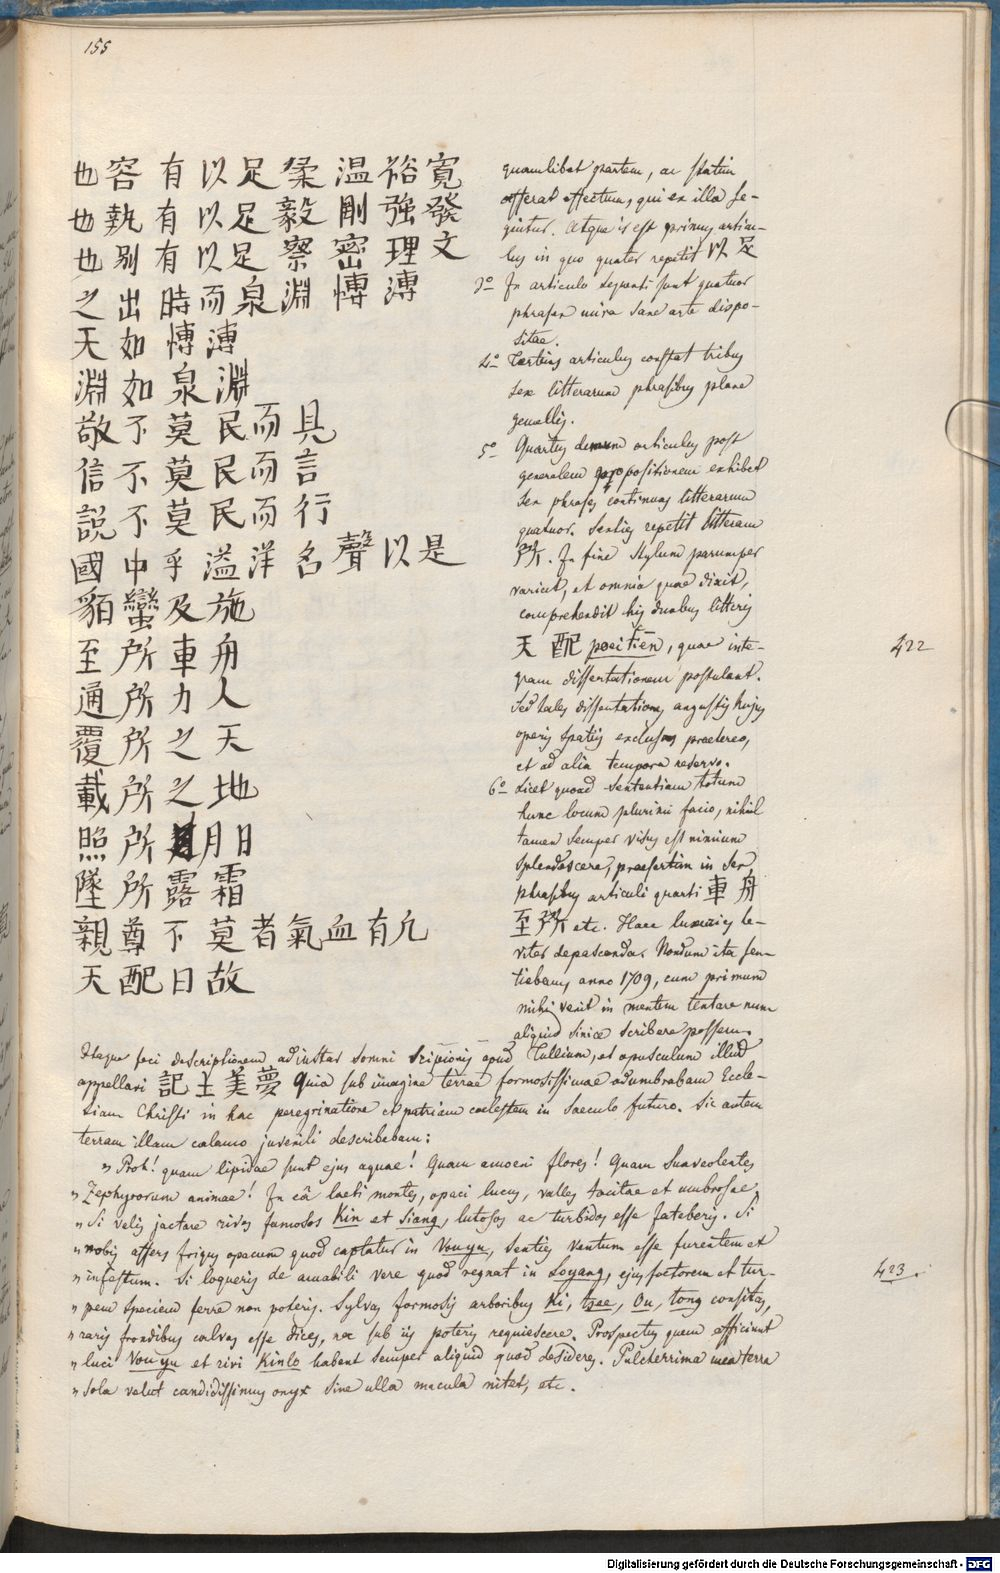 155
寬裕温柔足以有容也
發強剛毅足以有執也
文理密察足以有别也
溥愽淵泉而時出之
溥愽如天
淵泉如淵
見而民莫不敬
言而民莫不信
行而民莫不說
是以聲名洋溢乎中國
施及蠻貊
舟車所至
人力所通
天之所覆
地之所載
日月所照
霜露所墜
凡有血氣者莫不尊親
故曰配天
quamlibet partem, ac statim
afferat effectum, qui ex illa se-
quitur. Atque is est primus articu-
lus in quo quater repetit 足以
3º In articulo sequenti sunt quatuor
phrases mira sane arte dispo-
sitae.
4º Tertius articulus constat tribus
sex litterarum phrasibus plane
gemellis.
5º Quartus demum articulus post
generalem propositionem exhibet
sex phrases continuas litterarum
quatuor. Sexties repetit litteram
所. In fine stylum parumper
variat, et omnia quae dixit,
comprehendit his duabus litteris
配天 poeitiēn, quae inte-
gram dissertationem postulant.
422
Sed tales dissertationes angustis hujus
operis spatiis exclusas praetereo,
et ad alia tempora reservo.
6º Licet quoad sententiam totum
hunc locum plurimi facio, nihil
tamen semper visus est nimium
splendescere, praesertim in sex
phrasibus articuli quarti 舟車
所至 etc. Haec luxuries le-
viter depascenda. Nondum ita sen-
tiebam, anno 1709, cum primum
mihi venit in mentem tentare num
aliquid sinice scribere possem.
Itaque feci descriptionem ad instar somni Scipionis apud Tullium, et opusculum illud
appellavi 夢美土記 Quia sub imagine terrae formosissimae adumbrabam Eccle-
siam Christi in hac peregrinatione et patriam coelestem in saeculo futuro. Sic autem
terram illam calamo juvenili describebam:
" Proh! quam lipidae sunt ejus aquae! Quam amoeni flores! Quam suaveolentes
" Zephyrorum animae! In eâ laeti montes, opaci lucus, valles tacitae et umbrosae.
" Si velis jactare rivos famosos Kin et Siang, lutosos ac turbidos esse fateberis. Si
" nobis affers frigus opacum quod captatur in Vouyu, senties ventum esse furentem et
" infestum. Si loqueris de amabili vere quod regnat in Loyang, ejus foetorem et tur-
423.
" pem speciem ferre non poteris. Sylvas formosis arboribus Ki, tsee, Ou, tong consitas,
" raris frondibus calvas esse dices, nec sub iis poteris requiescere. Prospectus quem efficiunt
" luci Vouyu et rivi Kinlo habent semper aliquid quod desideres. Pulcherrima mea terra
" sola velut candidissimus onyx sine ulla macula nitet, etc.
Digitalisierung gefördert durch die Deutsche Forschungsgemeinschaft - DFG